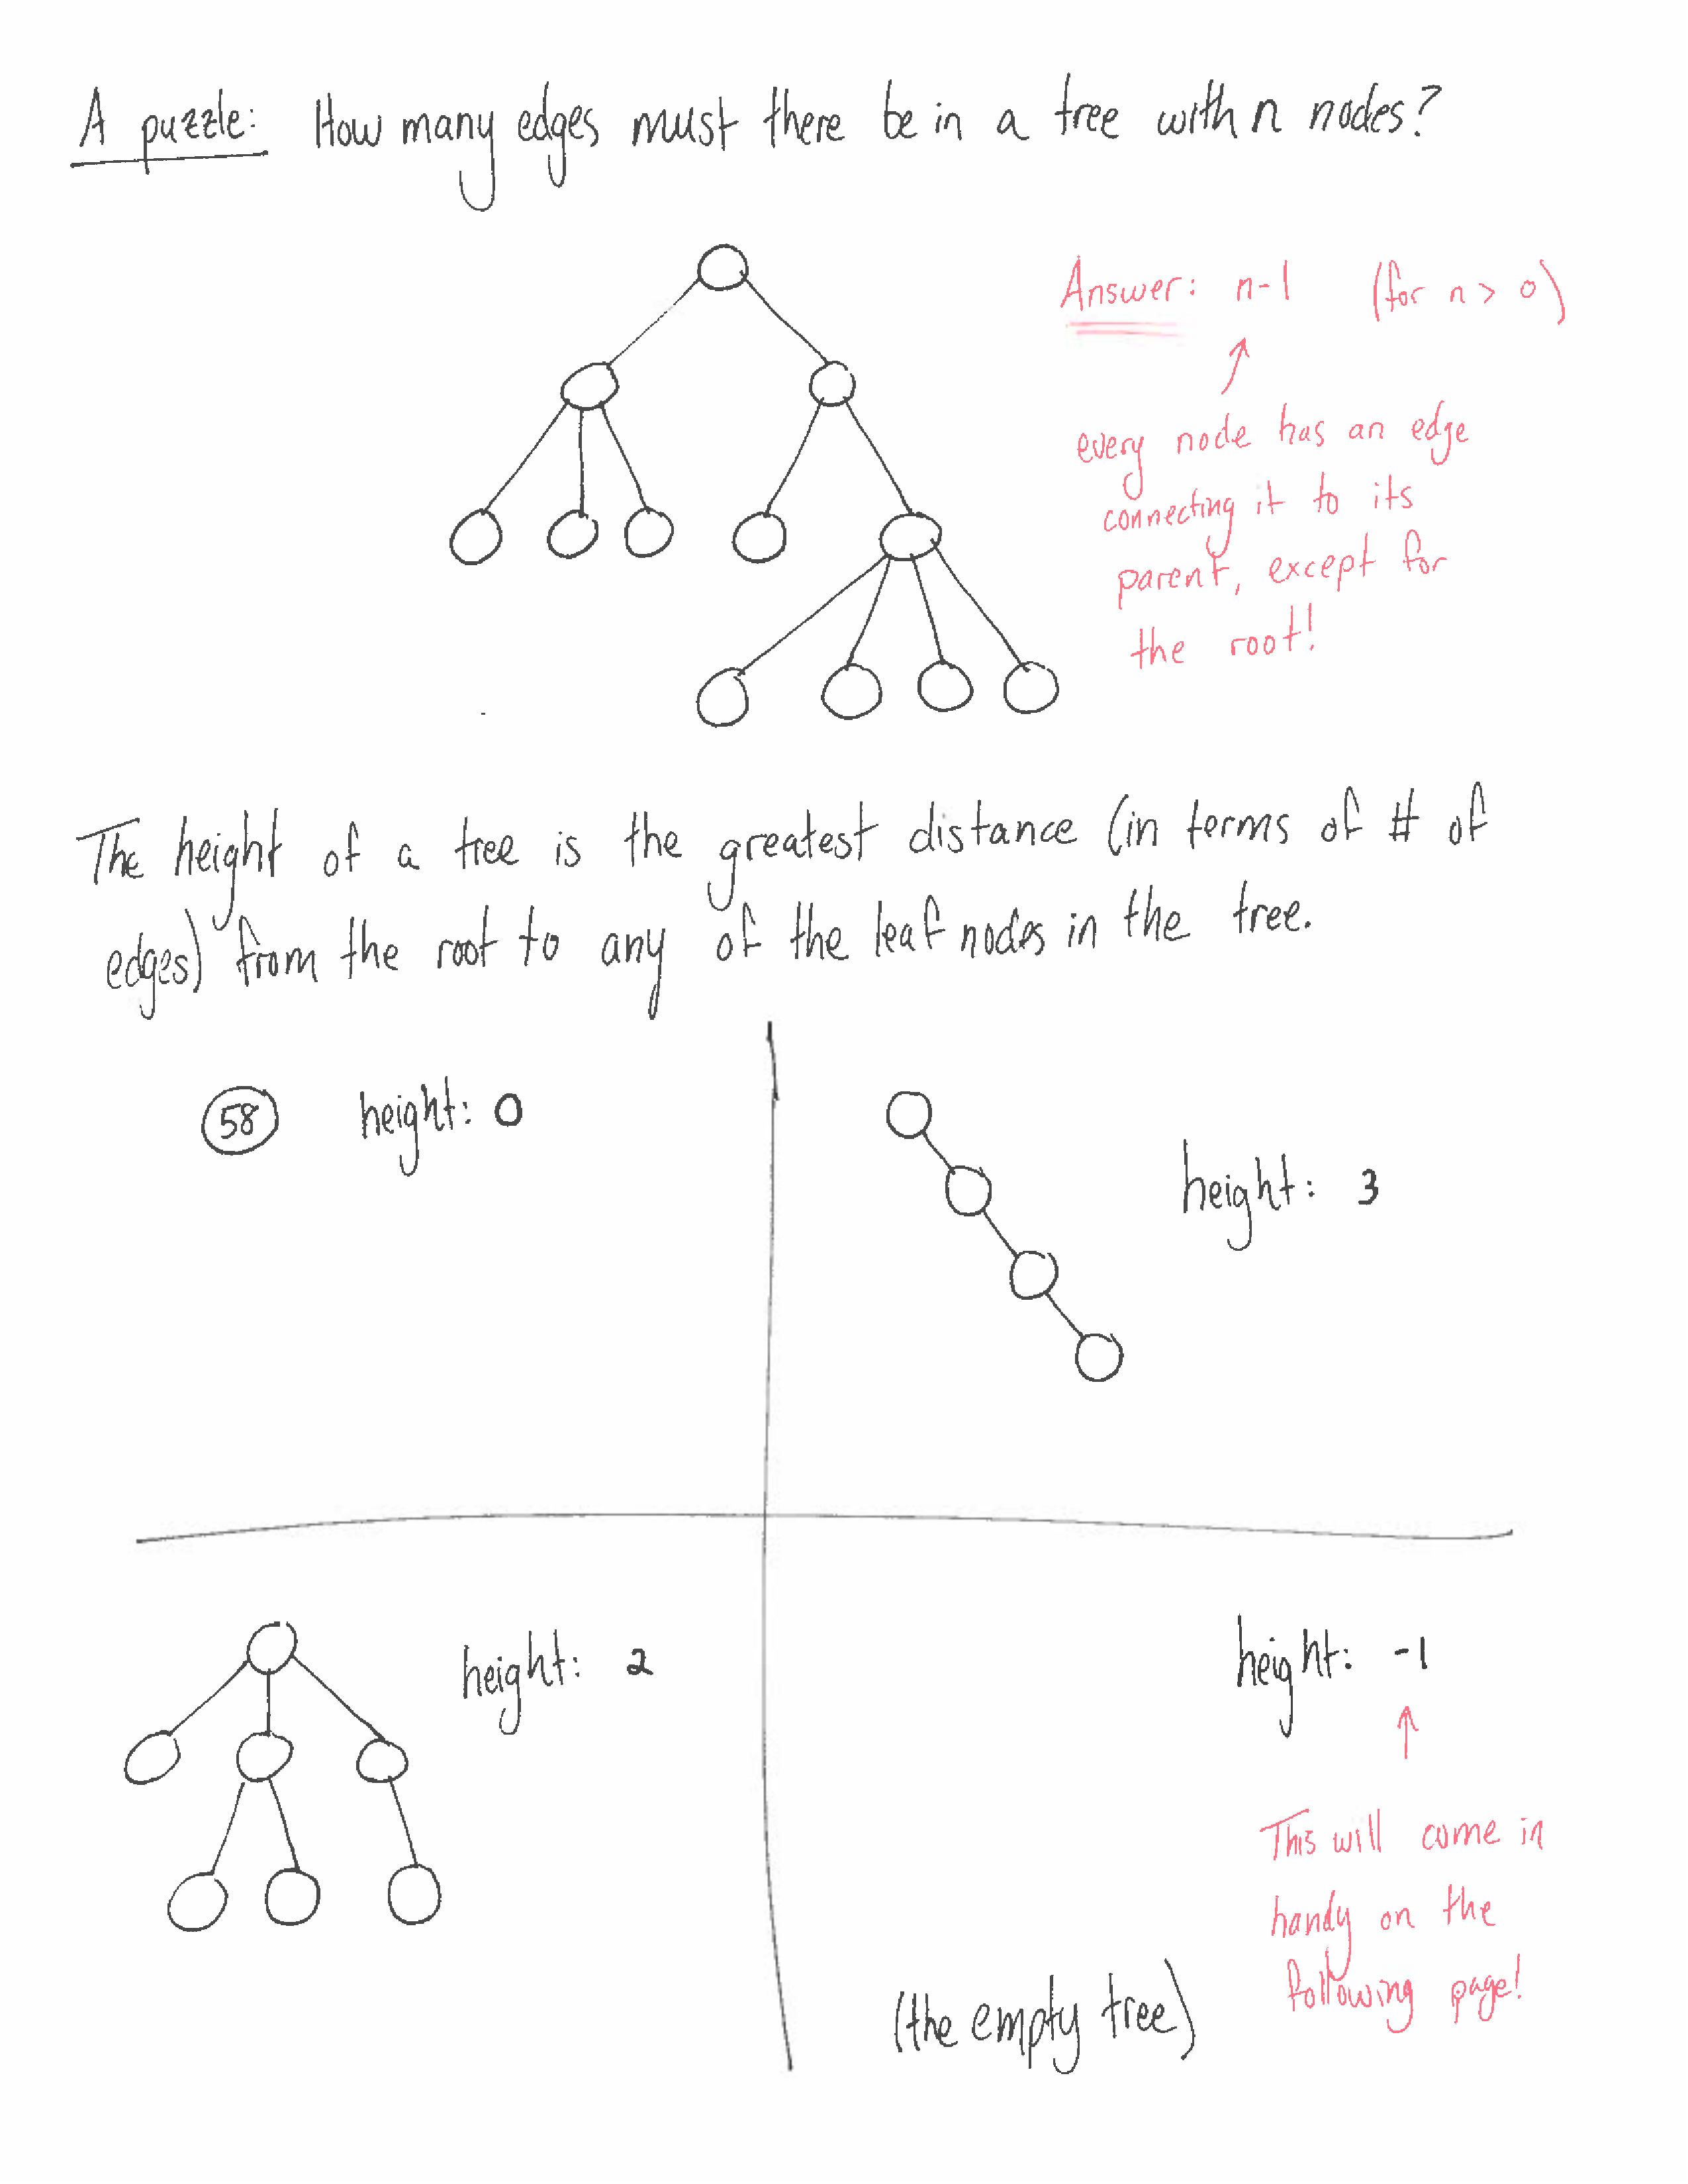 A puzzle: How many edges must there be in a tree with n nodes?
Answer: n-1 (for n > 0)
every node has an edge
connecting it to its
parent, except for
the root!
The height of a tree is the greatest distance (in terms of # of
edges) from the root to any of the leaf nodes in the tree.
58 height: 0
height: 3
height: 2
height: -1
This will come in
handy on the
following page!
(the empty tree)